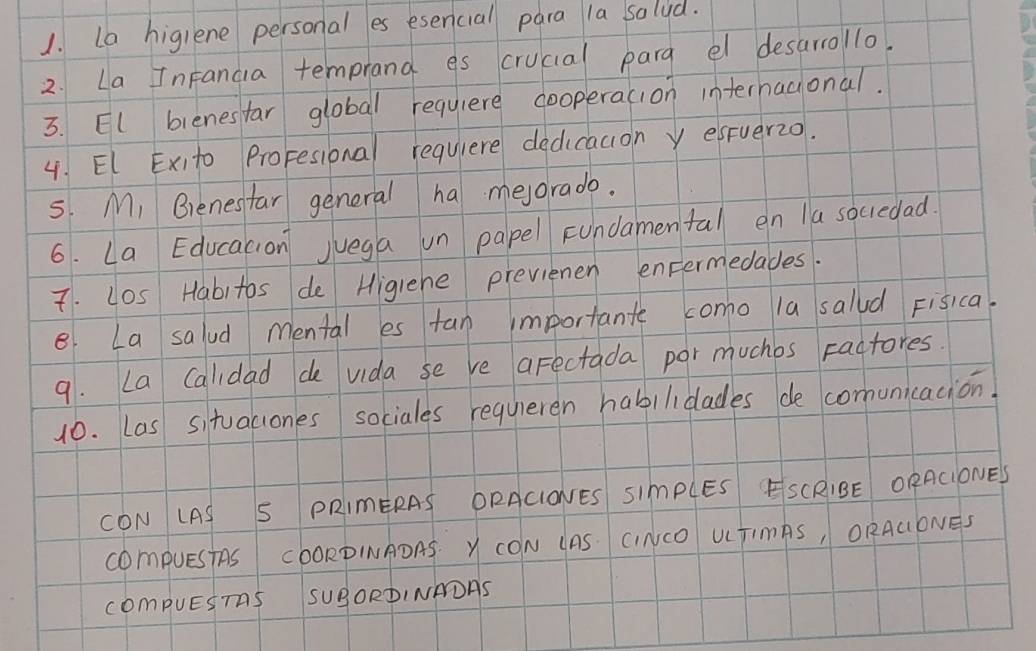 1. La higiene personal es esencial para la salud.
2. La Infancia temprana es crucial para el desarrollo.
3. El bienestar global requiere cooperación internacional.
4. El Exito Profesional requiere dedicacion y esfuerzo.
5. Mi Bienestar general ha mejorado.
6. La Educación juega un papel fundamental en la sociedad.
7. Los Habitos de Higiene previenen enfermedades.
8. La salud mental es tan importante como la salud Fisica.
9. La Calidad de vida se ve afectada por muchos Factores.
10. Las situaciones sociales requieren habilidades de comunicación.
CON LAS 5 PRIMERAS ORACIONES SIMPLES ESCRIBE ORACIONES
COMPUESTAS COORDINADAS Y CON LAS CINCO ULTIMAS, ORACIONES
COMPUESTAS SUBORDINADAS